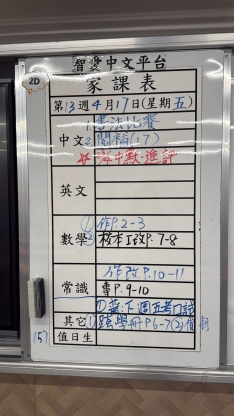 智愛中文平台
2D
家課表
第13週4月17日(星期五)
1.書法比賽
中文 2.閱稿(17)
中數進評
英文
①作P.2-3
數學 ②校本工改P.7-8
作改P.10-11
常識 粵P.9-10
下週五考口試
其它 ①顕學冊P.6-7(2)
值日生
157